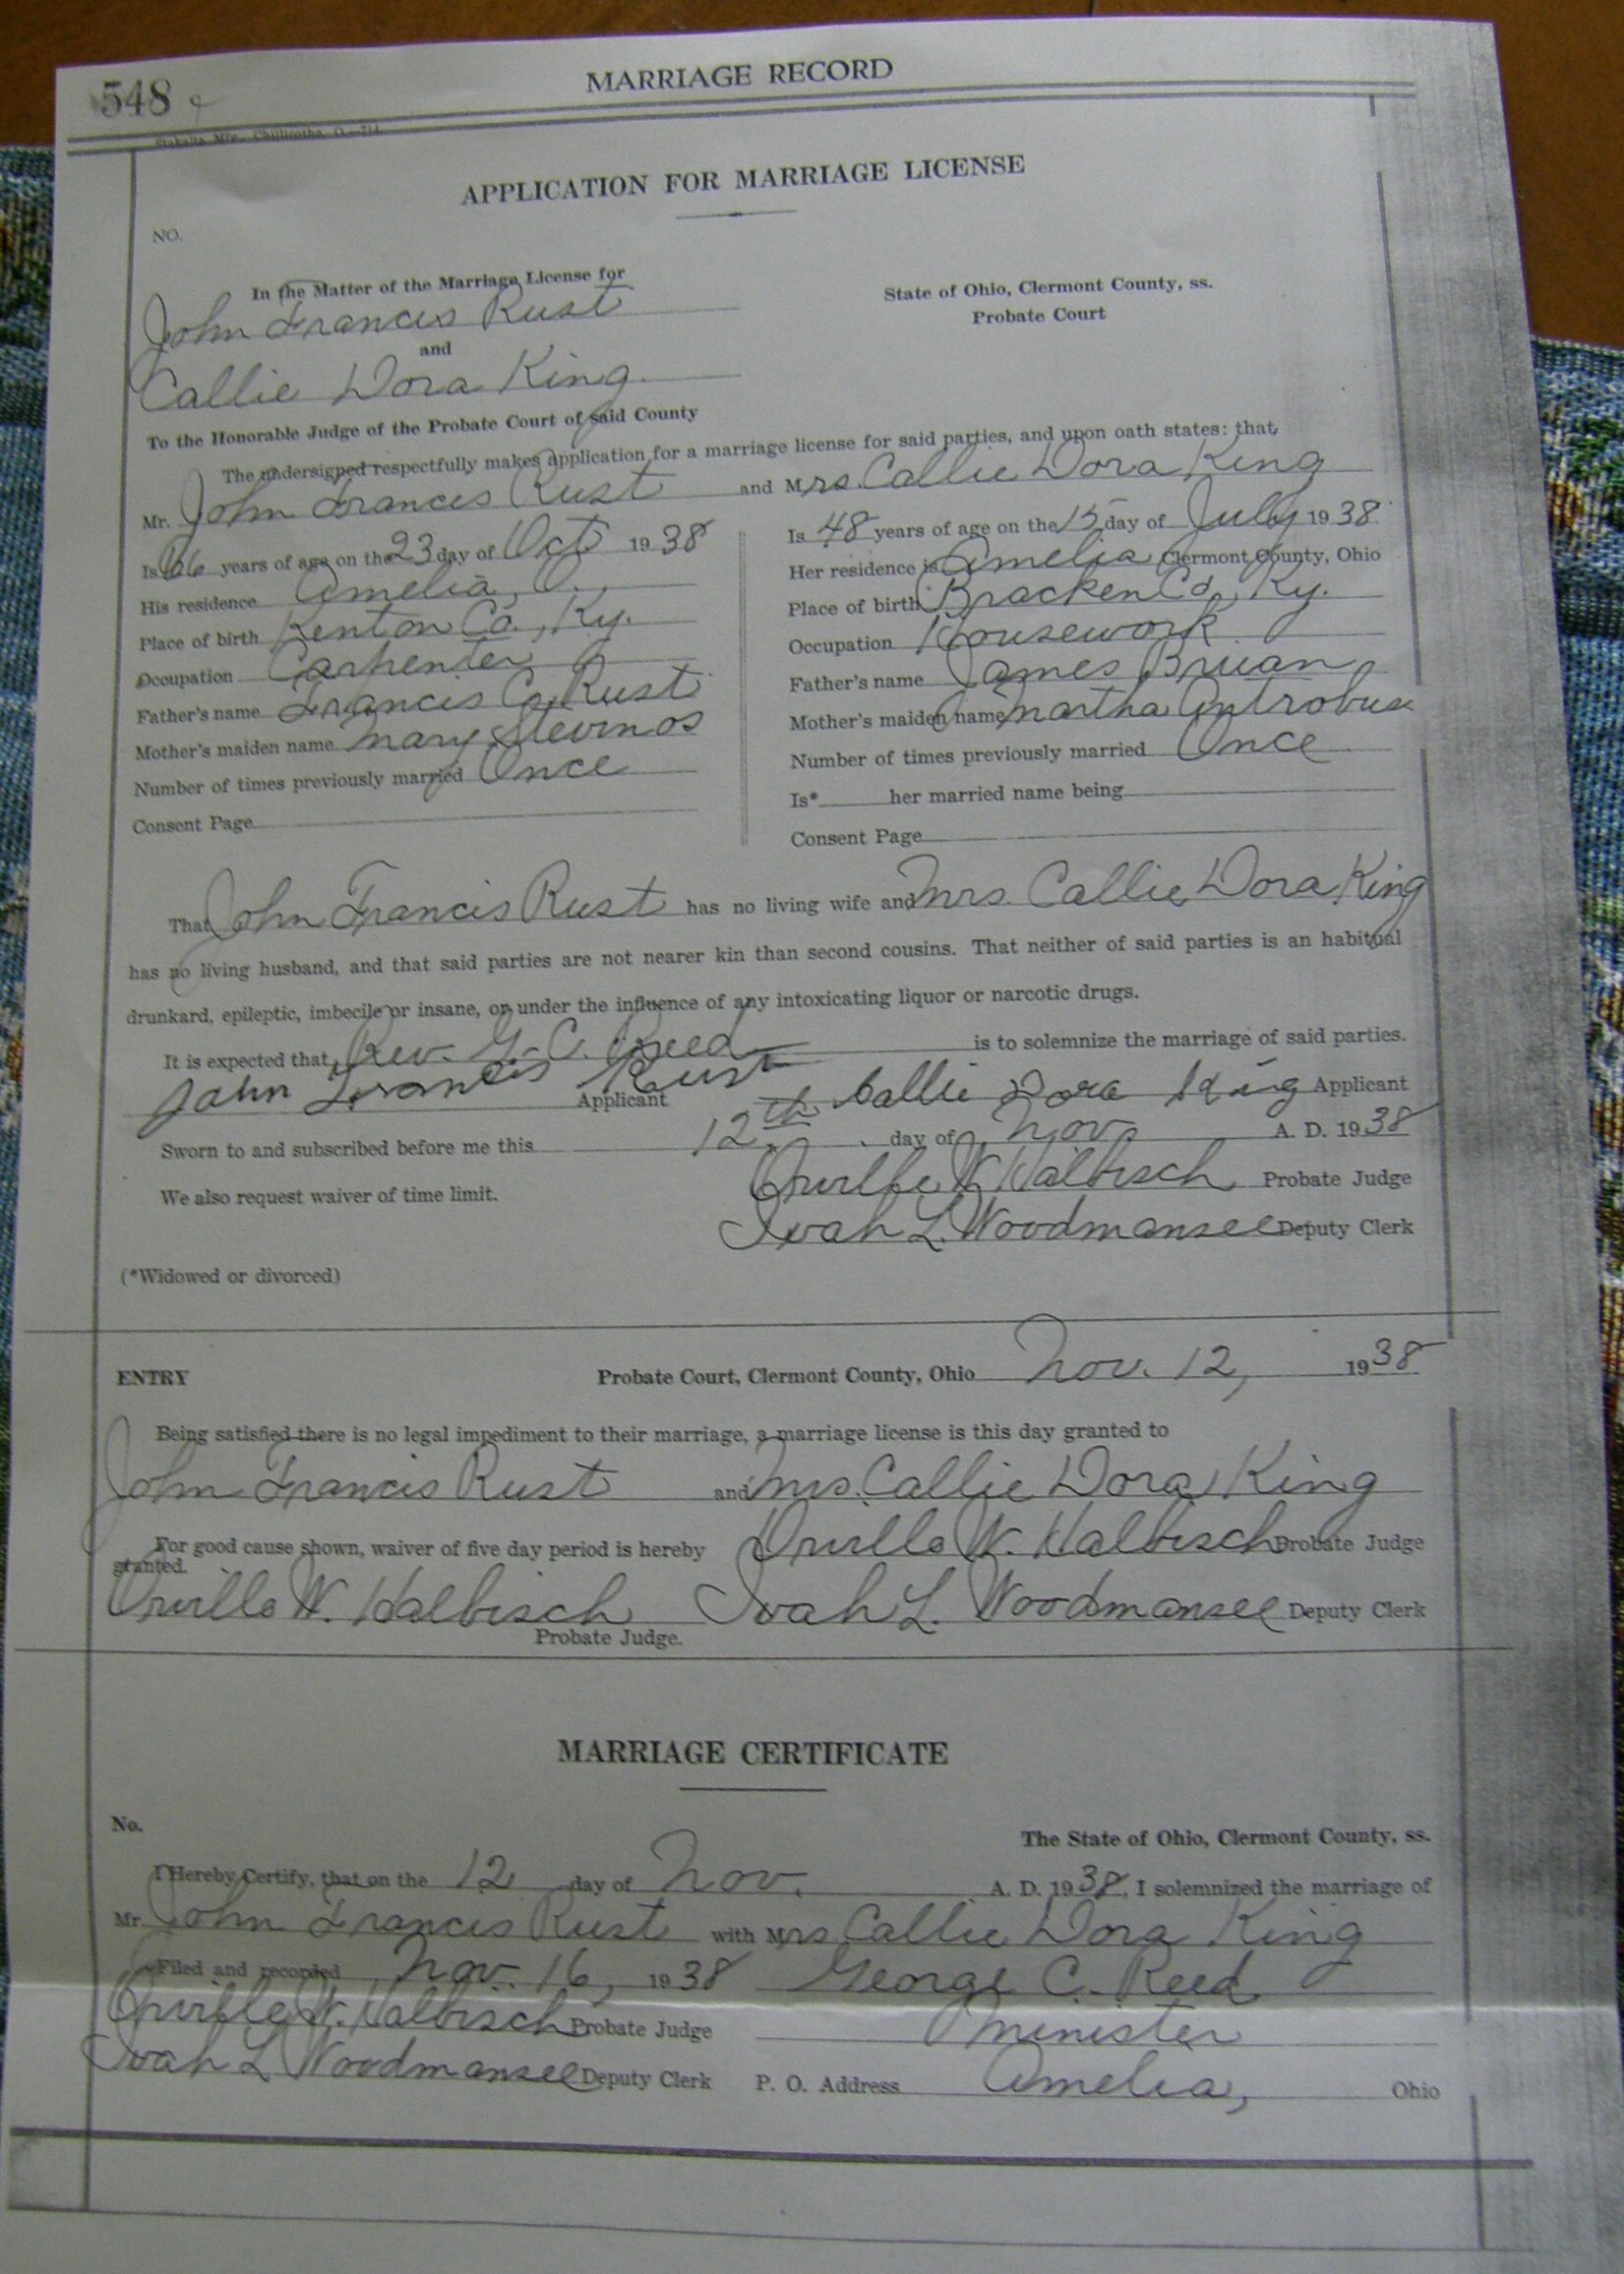 548
MARRIAGE RECORD
Chillicothe, O.
APPLICATION FOR MARRIAGE LICENSE
NO.
In the Matter of the Marriage License for
John Francis Rust
and
Callie Dora King
State of Ohio, Clermont County, ss.
Probate Court
To the Honorable Judge of the Probate Court of said County
The undersigned respectfully makes application for a marriage license for said parties, and upon oath states: that
Mr. John Francis Rust and Mrs. Callie Dora King
Is 66 years of age on the 23 day of Oct 1938
His residence Amelia, O.,
Place of birth Kenton Co., Ky.
Occupation Carpenter
Father's name Francis C. Rust
Mother's maiden name Mary
Number of times previously married Once
Consent Page
Is 48 years of age on the 15 day of July 1938
Her residence is Amelia, Clermont County, Ohio
Place of birth Bracken Co., Ky.
Occupation Housework
Father's name James Bruan
Mother's maiden name Martha Antrobus
Number of times previously married Once
Is* her married name being
Consent Page
That John Francis Rust has no living wife and Mrs. Callie Dora King
has no living husband, and that said parties are not nearer kin than second cousins. That neither of said parties is an habitual
drunkard, epileptic, imbecile or insane, or under the influence of any intoxicating liquor or narcotic drugs.
It is expected that Rev. G. C. Reed is to solemnize the marriage of said parties.
John Francis Rust Applicant Callie Dora King Applicant
Sworn to and subscribed before me this 12th day of Nov. A. D. 1938
Orville W. Halbisch Probate Judge
We also request waiver of time limit.
Ivah L. Woodmansee Deputy Clerk
(*Widowed or divorced)
ENTRY Probate Court, Clermont County, Ohio Nov. 12, 1938
Being satisfied there is no legal impediment to their marriage, a marriage license is this day granted to
John Francis Rust and Mrs. Callie Dora King
For good cause shown, waiver of five day period is hereby
granted.
Orville W. Halbisch Probate Judge
Orville W. Halbisch
Probate Judge.
Ivah L. Woodmansee Deputy Clerk
MARRIAGE CERTIFICATE
No.
The State of Ohio, Clermont County, ss.
I Hereby Certify, that on the 12 day of Nov. A. D. 1938, I solemnized the marriage of
Mr. John Francis Rust with Mrs Callie Dora King
Filed and recorded Nov. 16, 1938 George C. Reed
Orville W. Halbisch Probate Judge Minister
Ivah L Woodmansee Deputy Clerk P. O. Address Amelia, Ohio